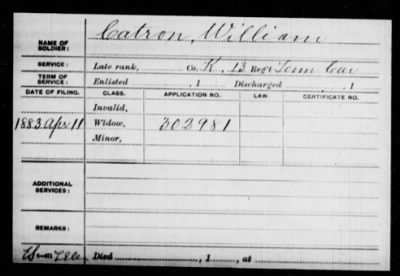 NAME OF SOLDIER: Catron, William
SERVICE: Late rank, Co. K, 13 Reg't Tenn Cav
TERM OF SERVICE: Enlisted , 1 Discharged , 1
DATE OF FILING. CLASS. APPLICATION NO. LAW. CERTIFICATE NO.
Invalid,
1883 Apr 11 Widow, 302981
Minor,
ADDITIONAL SERVICES:
REMARKS:
Died , 1 , at